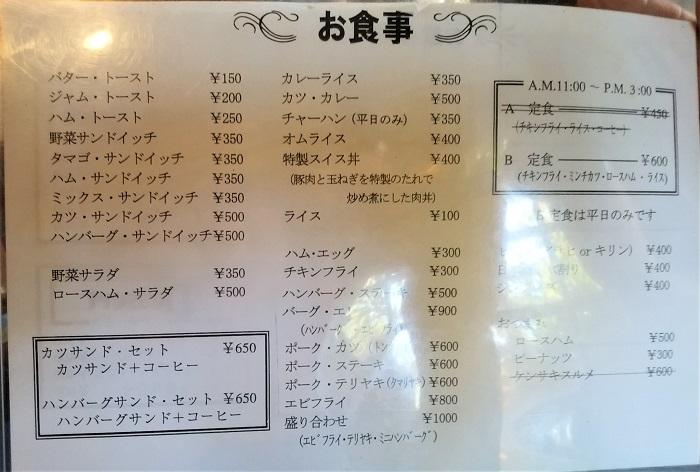 お食事
バター・トースト ¥150
ジャム・トースト ¥200
ハム・トースト ¥250
野菜サンドイッチ ¥350
タマゴ・サンドイッチ ¥350
ハム・サンドイッチ ¥350
ミックス・サンドイッチ ¥350
カツ・サンドイッチ ¥500
ハンバーグ・サンドイッチ¥500
野菜サラダ ¥350
ロースハム・サラダ ¥500
カツサンド・セット ¥650
カツサンド＋コーヒー
ハンバーグサンド・セット ¥650
ハンバーグサンド＋コーヒー
カレーライス ¥350
カツ・カレー ¥500
チャーハン（平日のみ） ¥350
オムライス ¥400
特製スイス丼 ¥400
（豚肉と玉ねぎを特製のたれで
炒め煮にした肉丼）
ライス ¥100
ハム・エッグ ¥300
チキンフライ ¥300
ハンバーグ・ステーキ ¥500
バーグ・エビ ¥900
ポーク・カツ ¥600
ポーク・ステーキ ¥600
ポーク・テリヤキ(タマリヤキ) ¥600
エビフライ ¥800
盛り合わせ ¥1000
（エビフライ・テリヤキ・ミニハンバーグ）
A.M.11:00 ～ P.M. 3:00
A 定食 ¥450
（チキンフライ・ライス・コーヒー）
B 定食 ¥600
（チキンフライ・ミンチカツ・ロースハム・ライス）
定食は平日のみです
or キリン） ¥400
割り ¥400
¥400
おつまみ
ロースハム ¥500
ピーナッツ ¥300
ケンサキスルメ ¥600